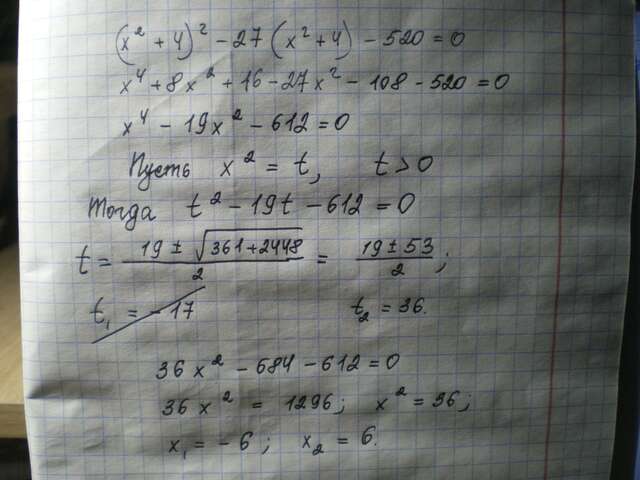 (x² + 4)² - 27 (x² + 4) - 520 = 0
x⁴ + 8x² + 16 - 27x² - 108 - 520 = 0
x⁴ - 19x² - 612 = 0
Пусть x² = t, t > 0
Тогда t² - 19t - 612 = 0
t = (19 ± √(361 + 2448))/2 = (19 ± 53)/2;
t₁ = - 17 t₂ = 36.
36x² - 684 - 612 = 0
36x² = 1296; x² = 36;
x₁ = - 6; x₂ = 6.